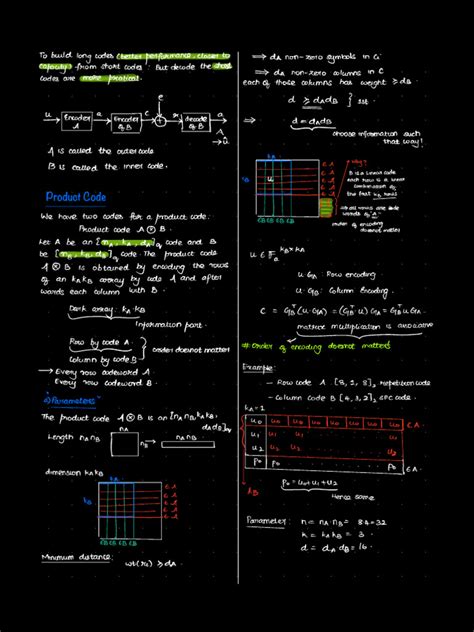 To build long codes (better performance, closer to
capacity) from short codes. But decode the short
codes are more practical.
e
u → Encoder A → a → Encoder of B → c → + → r → decode of B → û
A is called the outer code
B is called the inner code.
Product Code
We have two codes for a product code.
Product code A ⊗ B.
Let A be an [nA, kA, dA]q code and B
be [nB, kB, dB]q code. The product code
A ⊗ B is obtained by encoding the rows
of an kA kB array by code A and after
wards each column with B.
Data array: kA·kB
Information part.
Row by code A
Column by code B
order doesnot matter
→ Every row codeword A
Every row codeword B.
Parameters
The product code A ⊗ B is an [nA nB, kA kB,
dA dB]q
Length nA nB
nA nB
dimension kA kB
kA
kB
∈ A
∈ A
∈ A
∈ A
∈B ∈B ∈B ∈B
Minimum distance:
wt(ri) ≥ dA
⟹ dA non-zero symbols in ci
⟹ dA non-zero columns in C
each of those columns has weight ≥ dB
d ≥ dA dB } 1st
⟹ d = dA dB
choose information such
that way!
kA
kB
u
∈ A
∈ A
∈ A
∈ A
∈B ∈B ∈B ∈B
why?
B is a linear code
each row is a linear
combination of
the first kB rows
order of encoding
doesnot matter
u ∈ F kB×kA
u·GA: Row encoding
u·GB: Column Encoding.
C = GBᵀ(u·GA) = (GBᵀu)GA = GBᵀ u GA
matrix multiplication is associative
# Order of encoding doesnot matter!
Example:
- Row code A [8, 1, 8]2 repetition code
- Column code B [4, 3, 2]2 SPC code.
kA = 1
u0 u0 u0 u0 u0 u0 u0 u0 ∈ A
u1 u1 u1
u2 u2 u2
p0 p0 ∈ A
kB
p0 = u0 + u1 + u2
Hence same
Parameter: n = nA·nB = 8·4 = 32
k = kA kB = 3
d = dA dB = 16.